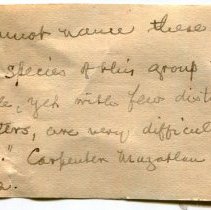 annot name these
species of this group
le, yet with few dist
ters, are very difficul
." Carpenter Mazatlan